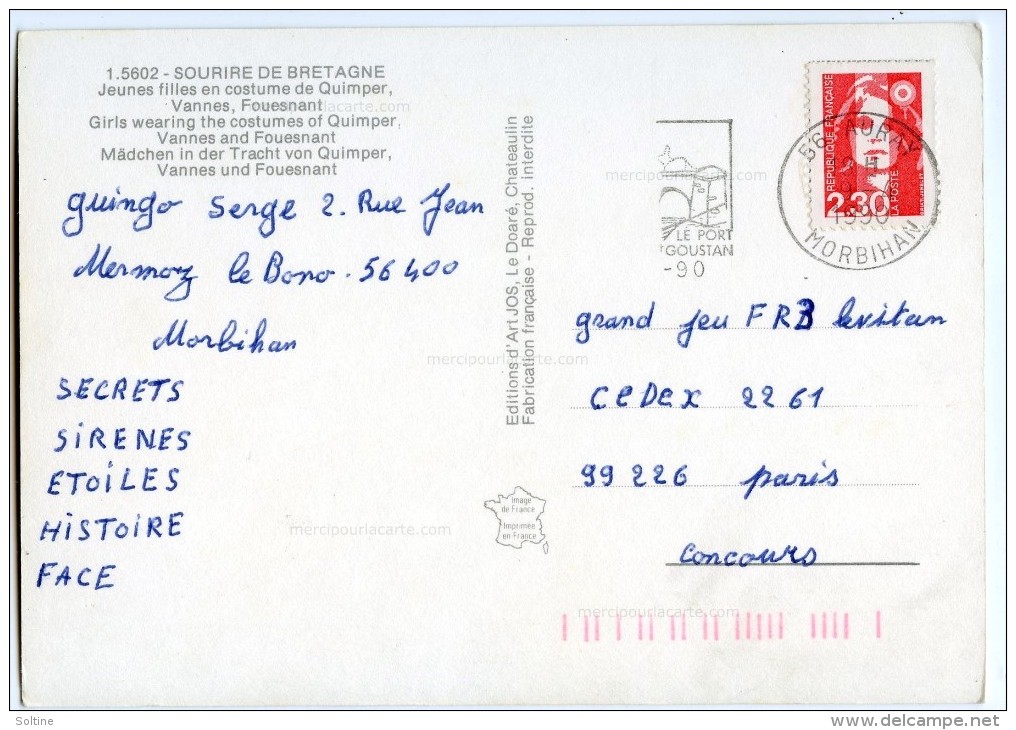 1.5602 - SOURIRE DE BRETAGNE
Jeunes filles en costume de Quimper,
Vannes, Fouesnant
Girls wearing the costumes of Quimper,
Vannes and Fouesnant
Mädchen in der Tracht von Quimper,
Vannes und Fouesnant
guingo Serge 2. Rue Jean
Mermoz le Bono. 56400
Morbihan
SECRETS
SiRENES
ETOiLES
HiSTOiRE
FACE
Editions d'Art JOS, Le Doaré, Chateaulin
Fabrication française - Reprod. interdite
Image
de France
Imprimée
en France
LE PORT
GOUSTAN
-90
56 AURAY
1990
MORBIHAN
REPUBLIQUE FRANÇAISE
2,30
LA POSTE
grand jeu FR3 levitan
CeDex 2261
99226 paris
Concours
mercipourlacarte.com
mercipourlacarte.com
mercipourlacarte.com
mercipourlacarte.com
mercipourlacarte.com
Soltine
delcampe.net